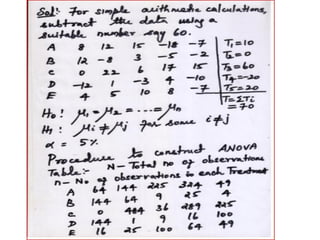 Sol: For simple arithmetic calculations,
subtract the data using a
suitable number say 60.
A 8 12 15 -18 -7 T1=10
B 12 -8 3 -5 -2 T2=0
C 0 22 6 17 15 T3=60
D -12 1 -3 4 -10 T4=-20
E 4 5 10 8 -7 T5=20
T=ΣTi
=70
H0: μ1=μ2=....=μn
H1: μi≠μj for some i≠j
α = 5%
Procedure to construct ANOVA
Table:- N-Total no of observations
n- No of observations in each Treatment
A 64 144 225 324 49
B 144 64 9 25 4
C 0 484 36 289 225
D 144 1 9 16 100
E 16 25 100 64 49